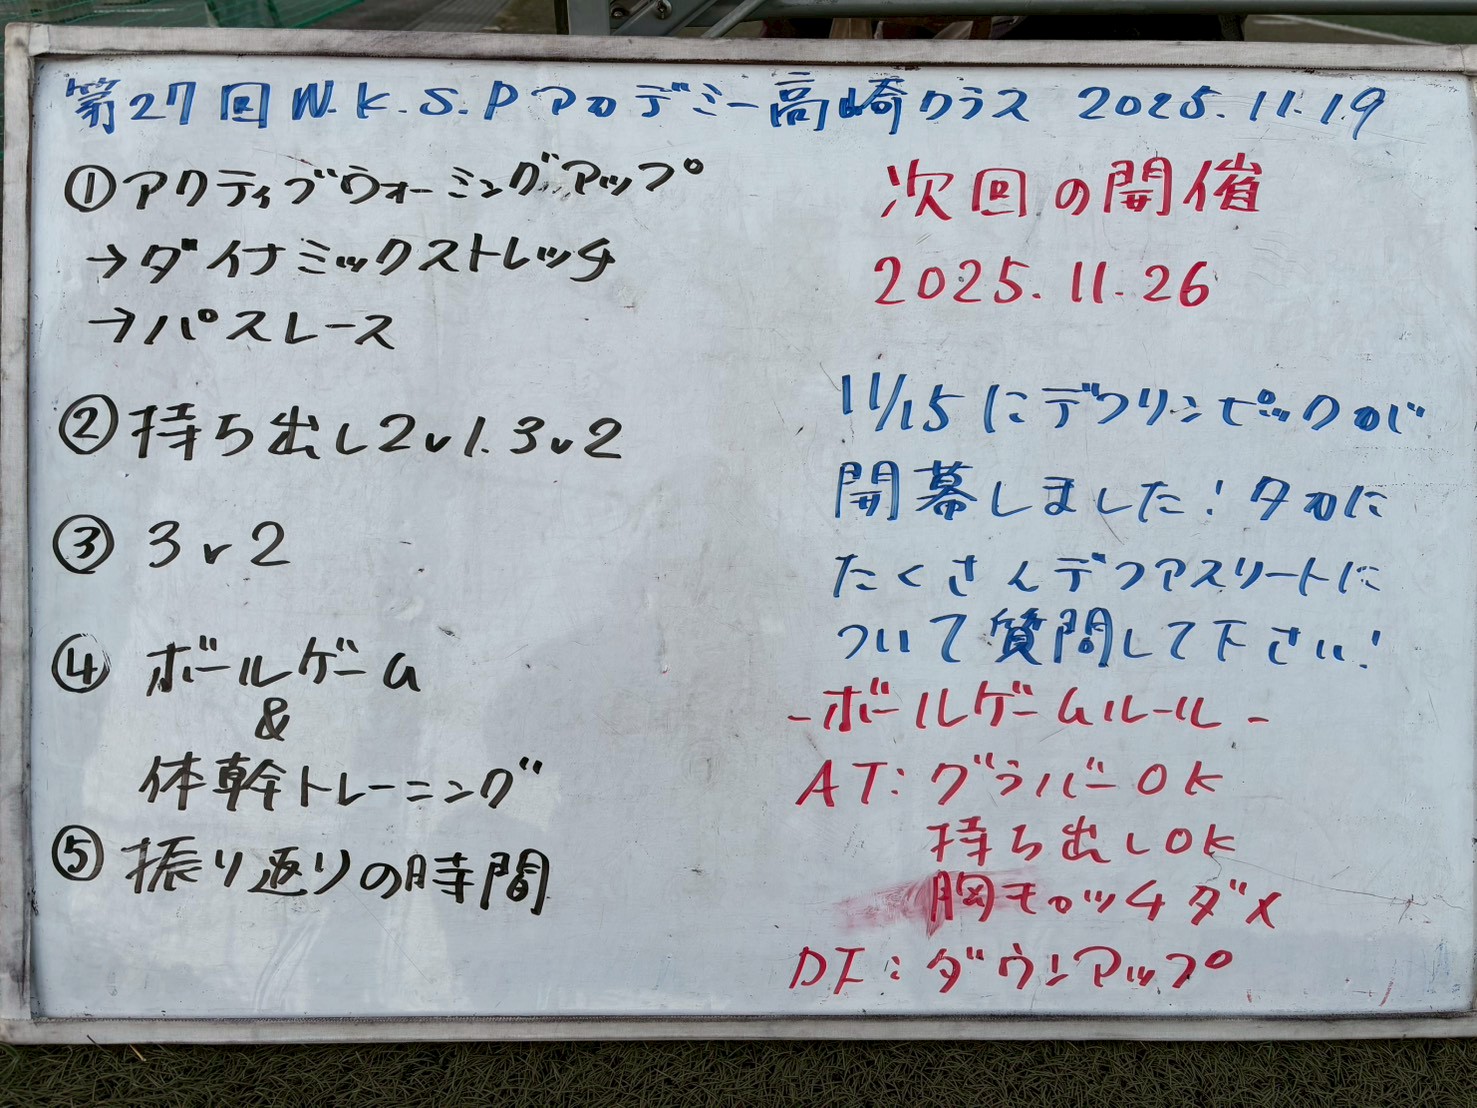 第27回 N.K.S.Pアカデミー高崎クラス 2025.11.19
①アクティブウォーミングアップ
→ダイナミックストレッチ
→パスレース
②持ち出し2v1.3v2
③ 3v2
④ ボールゲーム
&
体幹トレーニング
⑤振り返りの時間
次回の開催
2025.11.26
11/15にデフリンピックが
開幕しました!タカに
たくさんデフアスリートに
ついて質問して下さい!
-ボールゲームルール-
AT:グラバーOK
持ち出しOK
胸モロッチダメ
DF:ダウンアップ